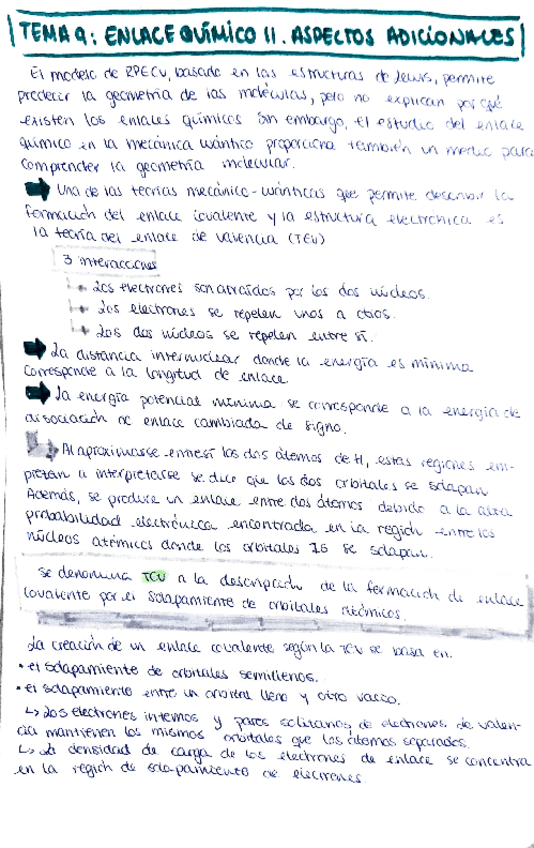 TEMA 9: ENLACE QUÍMICO II. ASPECTOS ADICIONALES
El modelo de RPECV, basado en las estructuras de Lewis, permite
predecir la geometría de las moléculas, pero no explican por qué
existen los enlaces químicos. Sin embargo, el estudio del enlace
químico en la mecánica cuántica proporciona también un medio para
comprender la geometría molecular.
Una de las teorías mecánico-cuánticas que permite describir la
formación del enlace covalente y la estructura electrónica es
la teoría del enlace de valencia (TEV)
3 interacciones
Los electrones son atraídos por los dos núcleos.
Los electrones se repelen unos a otros.
Los dos núcleos se repelen entre sí.
La distancia internuclear donde la energía es mínima
corresponde a la longitud de enlace.
La energía potencial mínima se corresponde a la energía de
disociación de enlace cambiada de signo.
Al aproximarse entre sí los dos átomos de H, estas regiones em-
piezan a interpretarse se dice que los dos orbitales se solapan.
Además, se produce un enlace entre dos átomos debido a la alta
probabilidad electrónica encontrada en la región entre los
núcleos atómicos donde los orbitales 1S se solapan.
Se denomina TCV a la descripción de la formación de enlace
covalente por el solapamiento de orbitales atómicos.
La creación de un enlace covalente según la TCV se basa en:
• el solapamiento de orbitales semillenos.
• el solapamiento entre un orbital lleno y otro vacío.
↳ Los electrones internos y pares solitarios de electrones de valen-
cia mantienen los mismos orbitales que los átomos separados.
↳ La densidad de carga de los electrones de enlace se concentra
en la región de solapamiento de electrones.